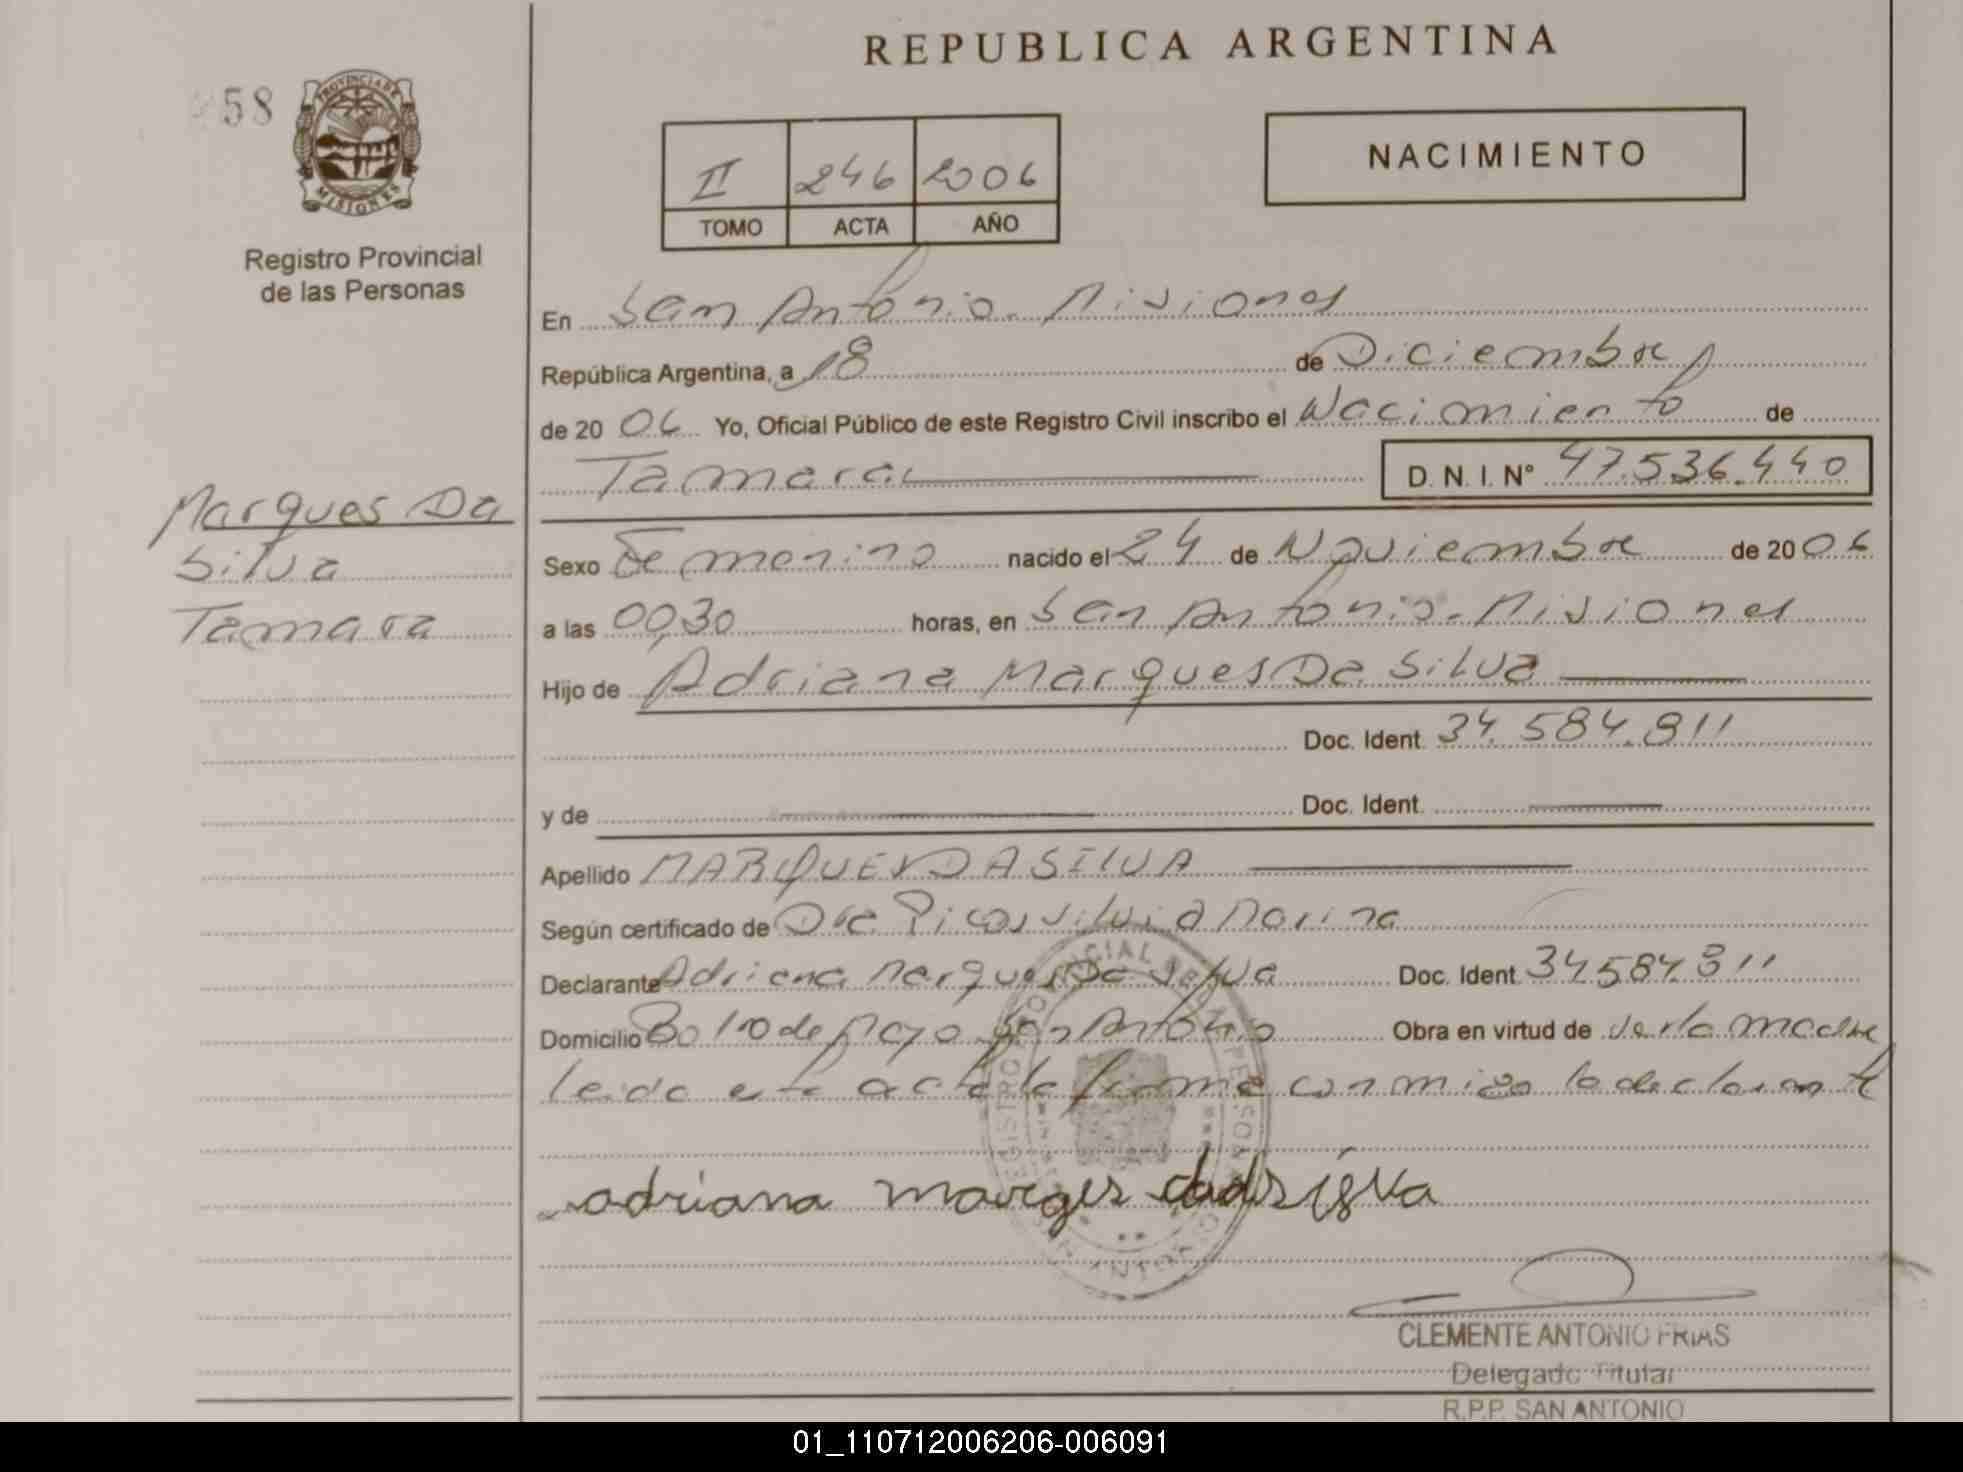 REPUBLICA ARGENTINA
58
PROVINCIA DE
MISIONES
Registro Provincial
de las Personas
II 246 2006
TOMO ACTA AÑO
NACIMIENTO
En San Antonio - Misiones
República Argentina, a 18 de Diciembre
de 2006 Yo, Oficial Público de este Registro Civil inscribo el Nacimiento de
Tamara D. N. I. N° 47.536.440
Marques Da
Silva
Tamara
Sexo Femenino nacido el 24 de Noviembre de 2006
a las 00,30 horas, en San Antonio - Misiones
Hijo de Adriana Marques Da Silva
Doc. Ident. 34.584.811
y de Doc. Ident.
Apellido MARQUES DA SILVA
Según certificado de Dra. Silvia
Declarante Adriana Marques Da Silva Doc. Ident. 34.584.811
Domicilio Bo 1ro de Mayo San Antonio Obra en virtud de ser la madre
leida esta acta la firma conmigo la declarante
adriana marqes dadsilva
REGISTRO PROVINCIAL DE LAS PERSONAS
SAN ANTONIO
CLEMENTE ANTONIO FRIAS
Delegado Titular
R.P.P. SAN ANTONIO
01_110712006206-006091